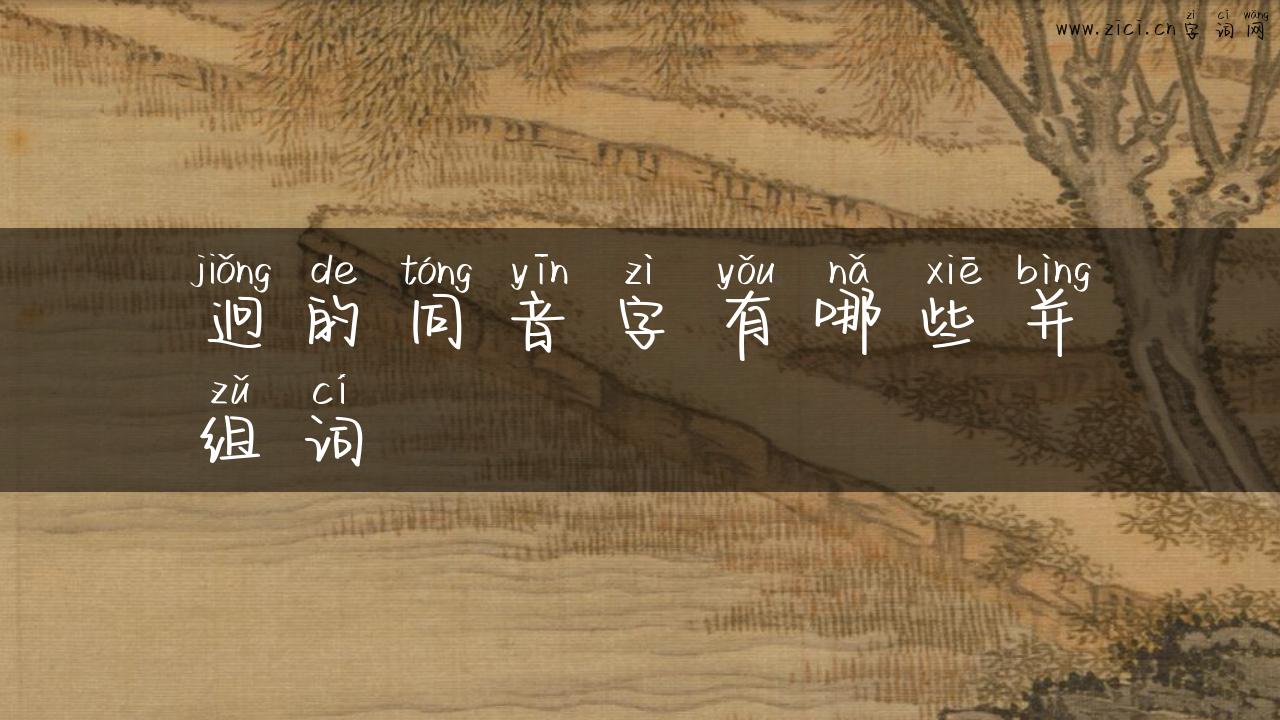 zì cí wǎng
www.zici.cn字词网
jiǒng de tóng yīn zì yǒu nǎ xiē bìng
迥的同音字有哪些并
zǔ cí
组词